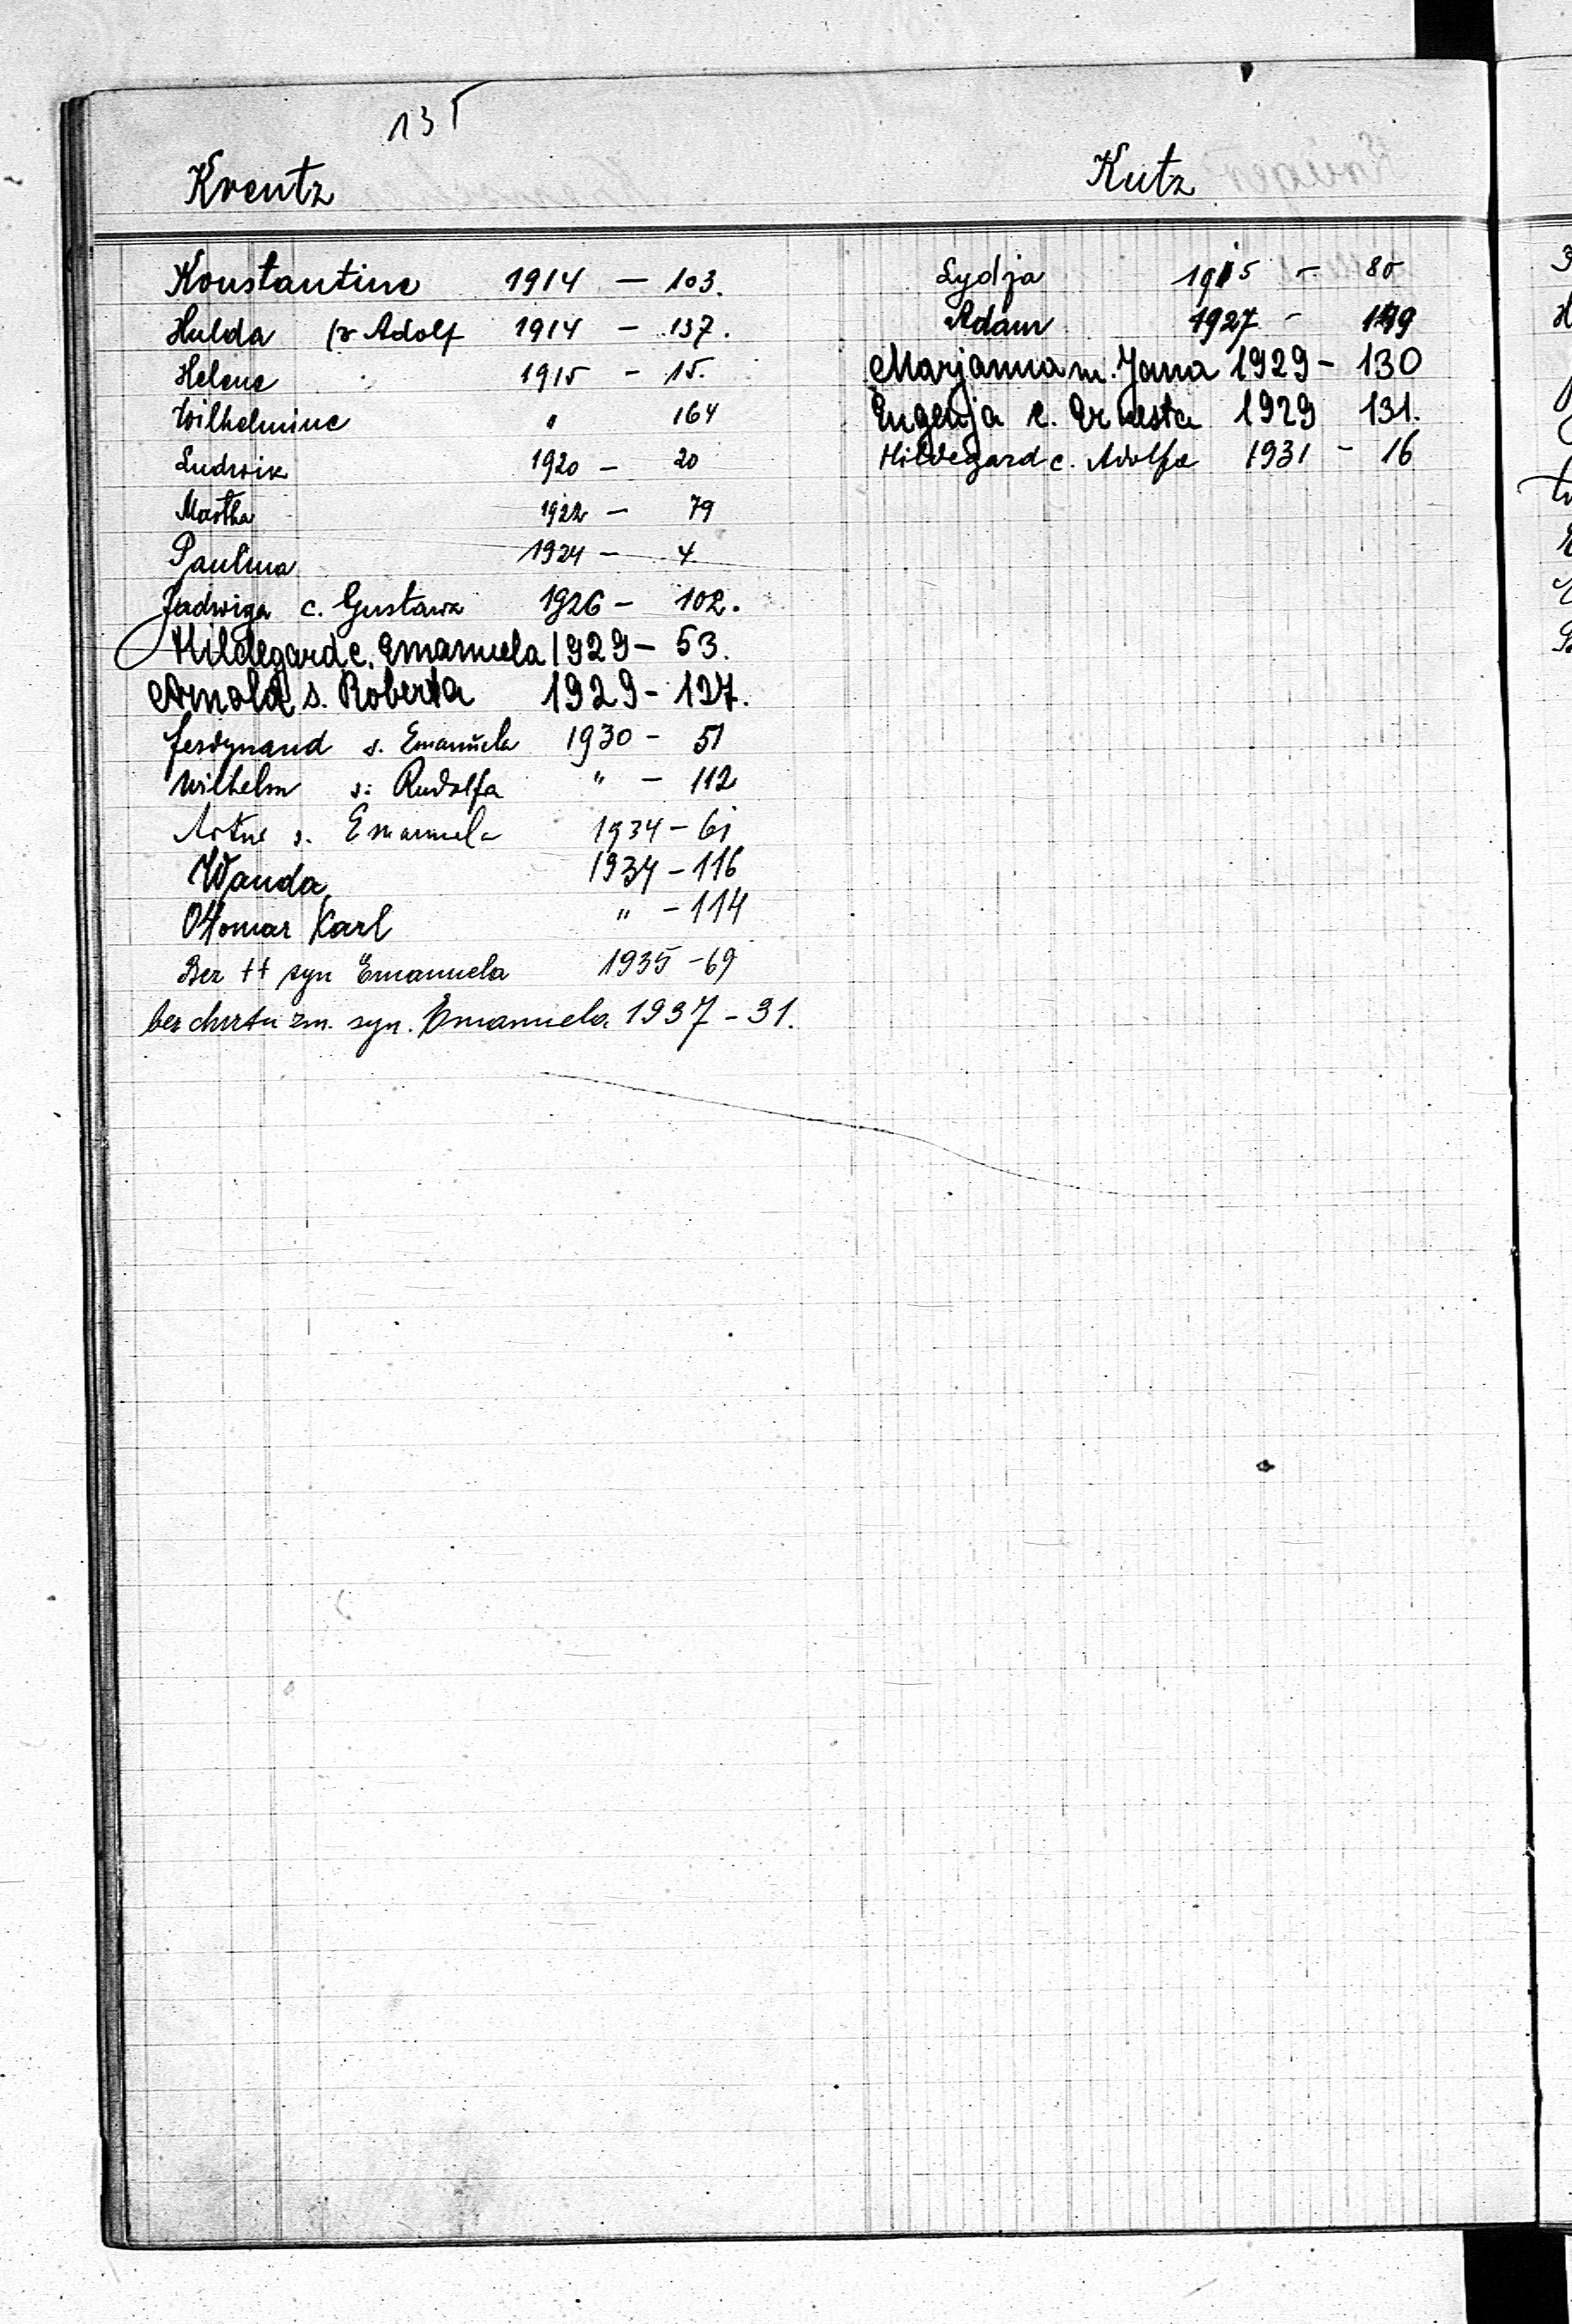 135
Kreutz
Konstantine 1914 — 103.
Hulda Adolf 1914 — 137.
Helene 1915 — 15.
Wilhelmine " 164
Ludwik 1920 — 20
Martha 1922 — 79
Paulina 1924 — 4
Jadwiga c. Gustawa 1926 — 102.
Hildegard c. Emanuela 1929 — 53.
Arnold s. Roberta 1929 - 127.
Ferdynand s. Emanuela 1930 - 51
Wilhelm s. Rudolfa " — 112
Artur s. Emanuela 1934 — 61
Wanda 1934 — 116
Ottomar Karl " — 114
Bez †† syn Emanuela 1935 - 69
bez chrztu zm. syn. Emanuela 1937 - 31.
Kutz
Lydja 1915 — 80
Adam 1927 - 149
Marjanna m. Jana 1929 - 130
Eugenja c. Ernesta 1929 131.
Hildegard c. Adolfa 1931 - 16